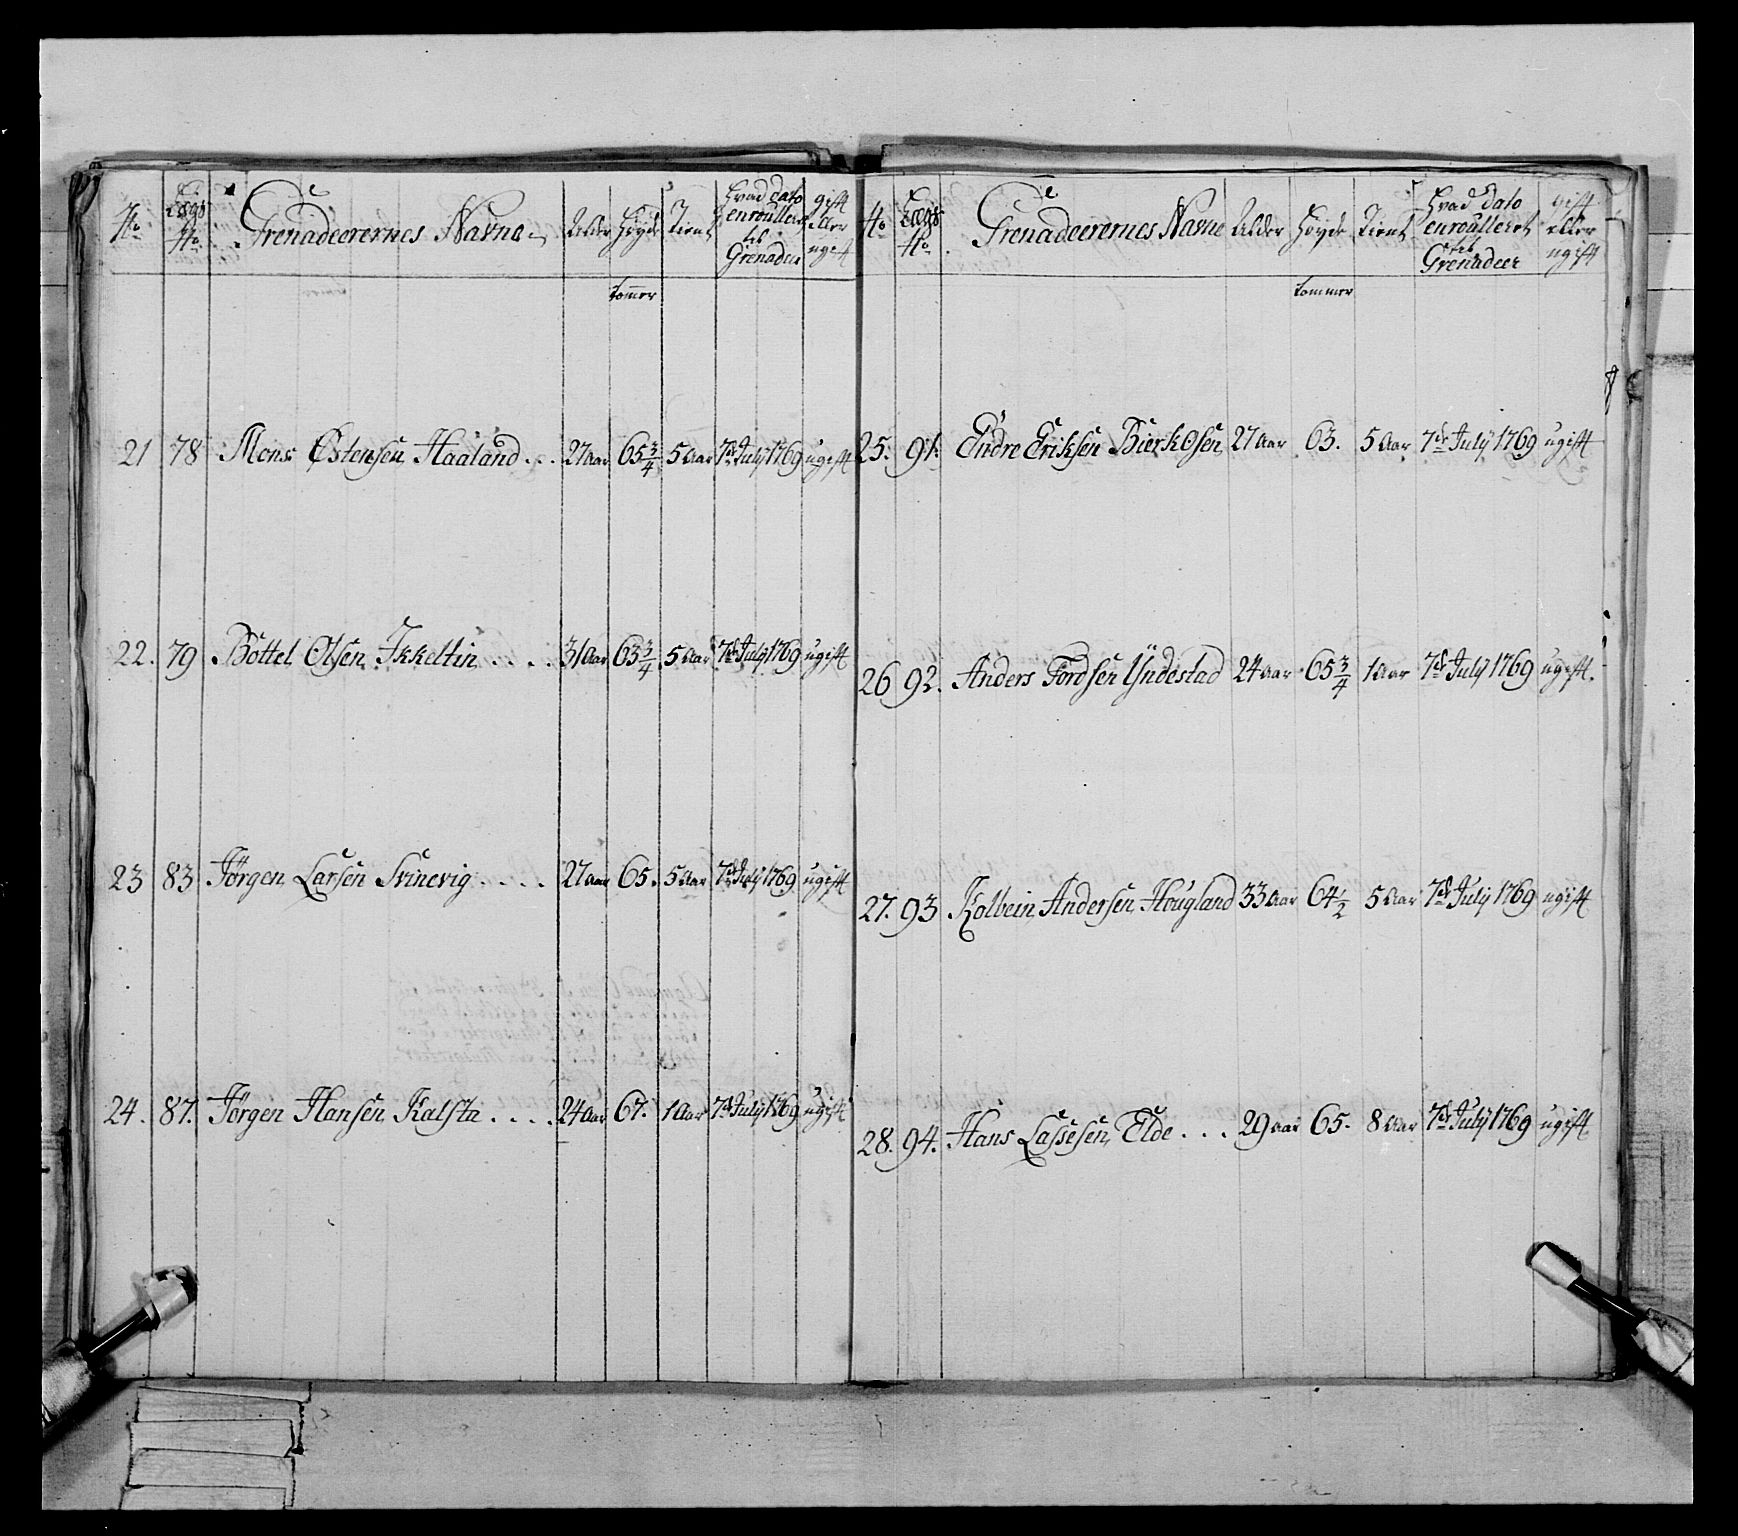 No Lægs No Grenadeerernes Navne Alder Høyde Tient Hvad dato enroulleret til Grenadeer gift eller ugift
tommer
21 78 Mons Østensen Haaland . . . 27 aar 65 3/4 5 Aar 7de July 1769 ugift
22. 79 Bottel Olsen Ikkeltin . . . . 31 Aar 63 3/4 5 Aar 7de July 1769 ugift
23 83 Jørgen Larsen Svinevig . . . . 27 aar 65. 5 Aar 7de July 1769 ugift
24. 87. Jørgen Hansen Kalsta . . . . 24 aar 67. 1 Aar 7de July 1769 ugift
No Lægs No Grenadeerernes Navne Alder Høyde Tient Hvad dato enroulleret til Grenadeer gift eller ugift
tommer
25. 91. Endre Eriksen Bierkosen 27 aar 63. 5 Aar 7de July 1769 ugift
26 92. Anders Tordsen Yndestad 24 aar 65 3/4 1 Aar 7de July 1769 ugift.
27. 93 Kolbein Andersen Hougland 33 Aar 64 1/2 5 Aar 7de July 1769 ugift
28. 94. Hans Lassesen Elde . . . 29 aar 65. 8 Aar 7de July 1769 ugift